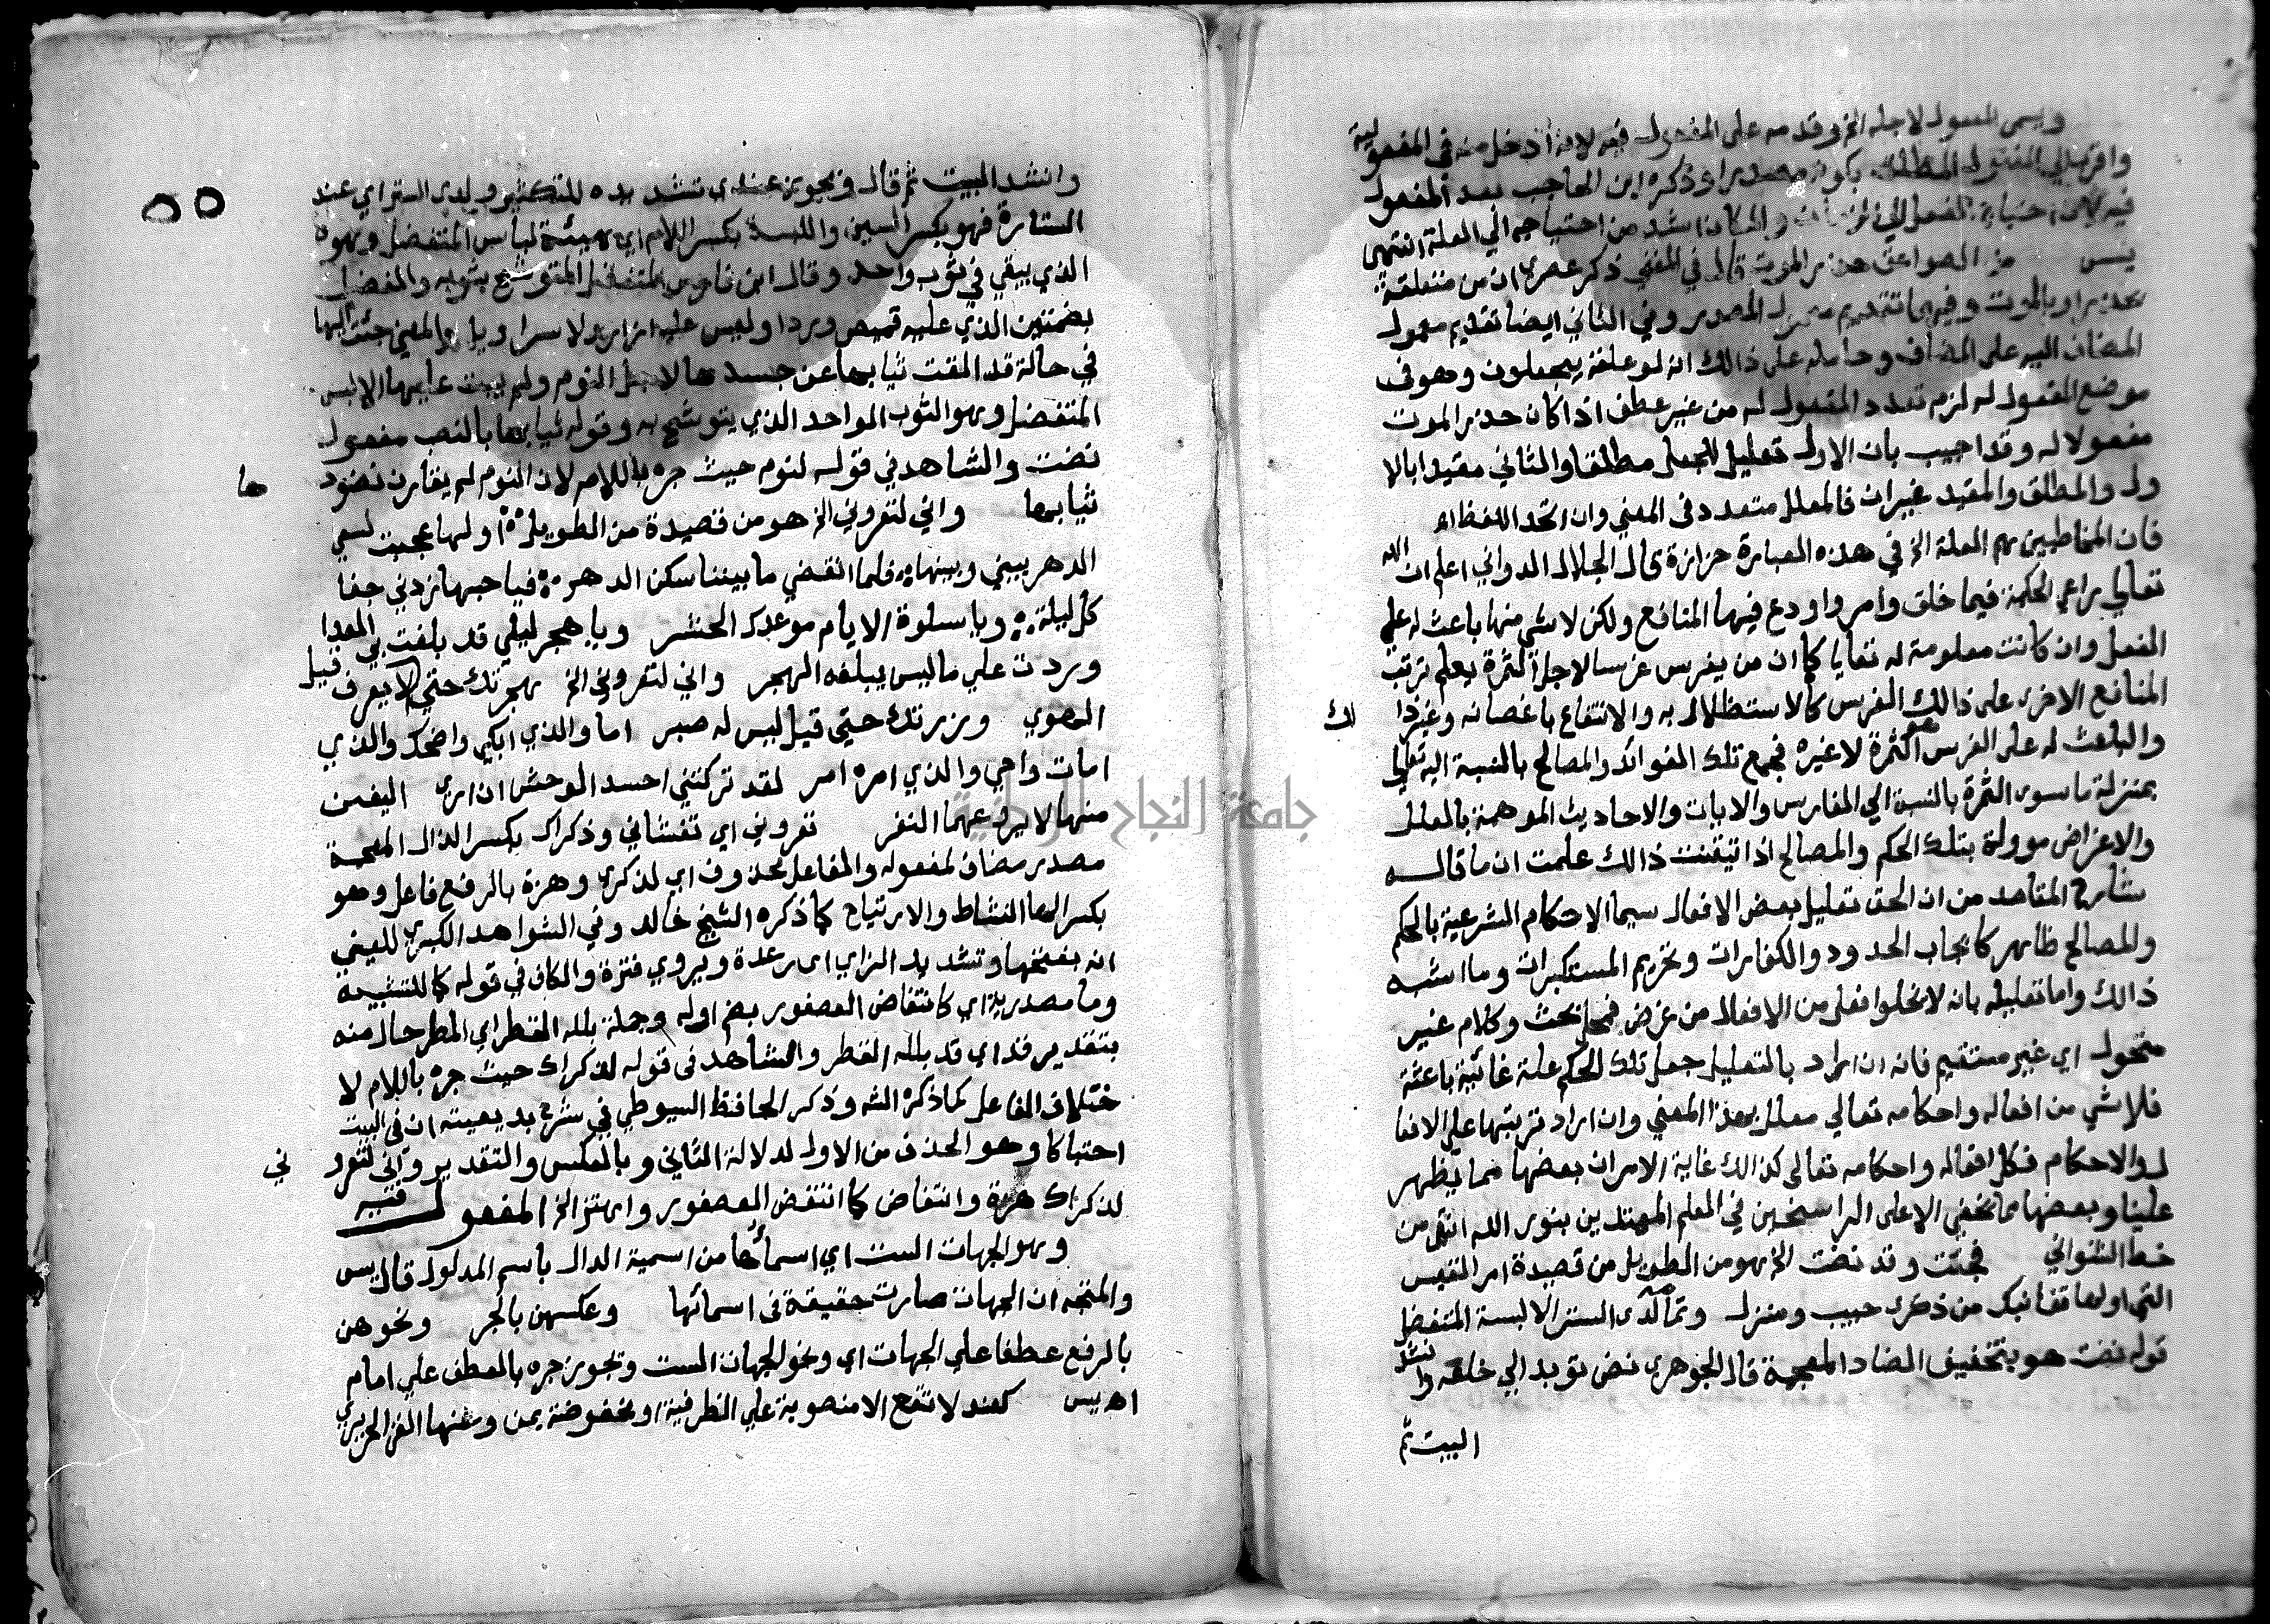 ويسمى المفعول لاجله الخ وقدمه على المفعول فيه لانه أدخل منه في المفعولية
واقرب الي المفعول المطلق بكونه مصدرا وذكره ابن الحاجب بعد المفعول
فيه لان احتياج الفعل الي الزمان والمكان اشد من احتياجه الي العلة انتهى
يس من الصواعق حذر الموت قال في المغني ذكر عصري ان من متعلقة
بحذر او بالموت وفيهما تقديم معمول المصدر وفي الثاني ايضا تقديم معمول
المضاف اليه على المضاف وحامله على ذالك انه لو علقه بيجعلون وهو في
موضع المفعول له لزم تعدد المفعول له من غير عطف اذا كان حذر الموت
مفعولا له وقد اجيب بان الاول تعليل للجعل مطلقا والثاني مقيدا بالا
ول والمطلق والمقيد غيران فالمعلل متعدد في المعني وان اتحد اللفظ اه
فان المخاطبين هم العلة الخ في هذه العبارة حزازة قال الجلال الدواني اعلم ان الله
تعالي يراعي الحكمة فيما خلق وامر واودع فيها المنافع ولكن لا شي منها باعث له علي
الفعل وان كانت معلومة له تعالي كما ان من يغرس غرسا لاجل الثمرة يعلم ترتب
المنافع الاخرى على ذالك الغرس كالاستظلال به والانتفاع باغصانه وغير ذا لك
والباعث له على الغرس هو الثمرة لا غيره فجميع تلك الفوائد والمصالح بالنسبة اليه تعالي
بمنزلة ما سوى الثمرة بالنسبة الي الغارس والايات والاحاديث الموهمة بالعلل
والاغراض موولة بتلك الحكم والمصالح اذا تيقنت ذالك علمت ان ما قاله
شارح المقاصد من ان الحق تعليل بعض الافعال سيما الاحكام الشرعية بالحكم
والمصالح ظاهر كايجاب الحدود والكفارات وتحريم المستكبرات وما اشبه
ذالك واما تعليله بانه لا يخلوا فعل من الافعال من غرض فمحل بحث وكلام غير
منحول اي غير مستقيم فانه ان اراد بالتعليل جعل تلك الحكم علة غائية باعثة
فلا شي من افعاله واحكامه تعالي معلل بهذا المعني وان اراد ترتبها علي الافعا
ل والاحكام فكل افعاله واحكامه تعالى كذالك غاية الامر ان بعضها مما يظهر
علينا وبعضها مما يخفي الا على الراسخين في العلم المهتدين بنور الله انتهى من
خط الشنواني فجئت وقد نضت الخ هو من الطويل من قصيدة امر القيس
التي اولها قفا نبك من ذكرى حبيب ومنزل وتمامه لدى الستر الا لبسة المتفضل
قوله نضت هو بتخفيف الضاد المعجمة قال الجوهري نض ثوبه الي خلعه وانشد
البيت ثم
٥٥
وانشد البيت ثم قال ويجوز عندي تشديده للتكثير ولدى الستر اي عند
الستارة فهو بكسر السين واللبسة بكسر اللام اي هيئة لباس المتفضل وهو
الذي يبقي في ثوب واحد وقال ابن فارس المتفضل المتوشح بثوبه والمفضل
بضمتين الذي عليه قميص وردا وليس عليه ازار ولا سراويل والمعني جئت اليها
في حالة قد القت ثيابها عن جسدها لاجل النوم ولم يبق عليها الا لبس
المتفضل وهو الثوب الواحد الذي يتوشح به وقوله ثيابها بالنصب مفعول
نضت والشاهد في قوله لنوم حيث جره باللام لان النوم لم يقارن نضوها
ثيابها واني لتعروني الخ هو من قصيدة من الطويل اولها عجبت لسعي
الدهر بيني وبينها فلما انقضي ما بيننا سكن الدهر فيا حبها زدني جفا
كل ليلة ويا سلوة الايام موعدك الحشر ويا هجر ليلي قد بلغت بي المدا
وزدت علي ما ليس يبلغه الهجر واني لتعروني الخ هجرتك حتي قيل لا يعرف
الهوي وزرتك حتي قيل ليس له صبر اما والذي ابكي واضحك والذي
امات واحي والذي امره امر لقد تركتني احسد الوحش ان ارى اليفين
منها لا يروعهما النفر تعروني اي تغشاني وذكراك بكسر الذال المعجمة
مصدر مضاف لمفعوله والفاعل محذوف اي لذكري وهزة بالرفع فاعل وهو
بكسر الها النشاط والارتياح كما ذكره الشيخ خالد وفي الشواهد الكبرى للعيني
انه بفتحها وتشديد الزاي اي رعدة ويروي فترة والكاف في قوله كما للتشبيه
وما مصدرية اي كانتفاض العصفور بضم اوله وجملة بلله القطر اي المطر حال منه
بتقدير قد اي قد بلله القطر والشاهد في قوله لذكراك حيث جره باللام لا
ختلاف الفاعل كما ذكره الشه وذكر الحافظ السيوطي في شرح بديعيته ان في البيت
احتباكا وهو الحذف من الاول لدلالة الثاني وبالعكس والتقدير واني لتعرو ني
لذكراك هزة وانتفاض كما انتفض العصفور واهتز الخ المفعول فيه
وهو الجهات الست اي اسمائها من اسمية الدال باسم المدلول قال يس
والمتجه ان الجهات صارت حقيقة في اسمائها وعكسهن بالجر ونحوهن
بالرفع عطفا علي الجهات اي ونحو الجهات الست ويجوز جره بالعطف علي امام
اه يس كعند لا تقع الا منصوبة علي الظرفية او مخفوضة بمن ومنها الغز الحريري
جامعة النجاح الوطنية